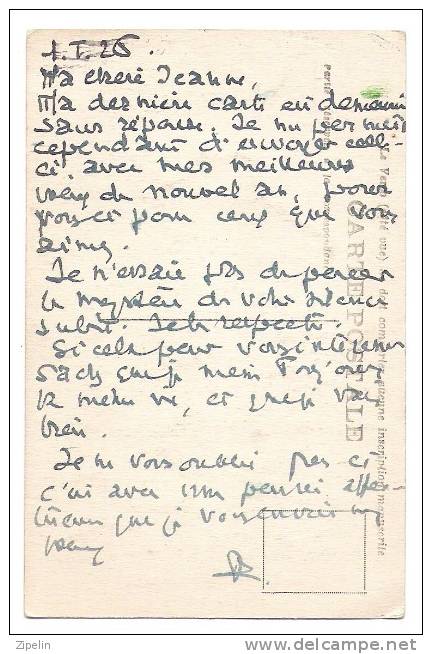 1.I.26.
Ma chere Jeanne,
Ma derniere carte en demeura
sans réponse. Je me permets
cependant d'envoyer celle-
ci avec mes meilleurs
vœux du nouvel an, pour
vous et pour ceux que vous
aimez.
Je n'essaie pas de percer
le mystère de votre silence
subit. Je le respecte.
Si cela peut vous intéresser
sachez que je mène toujours
la même vie, et que je vais
bien.
Je ne vous oublie pas et
c'est avec une pensée affec-
tueuse que je vous envoie mes
vœux
R.
CARTE POSTALE
inscription manuscrite
Zipelin
www.delcampe.net